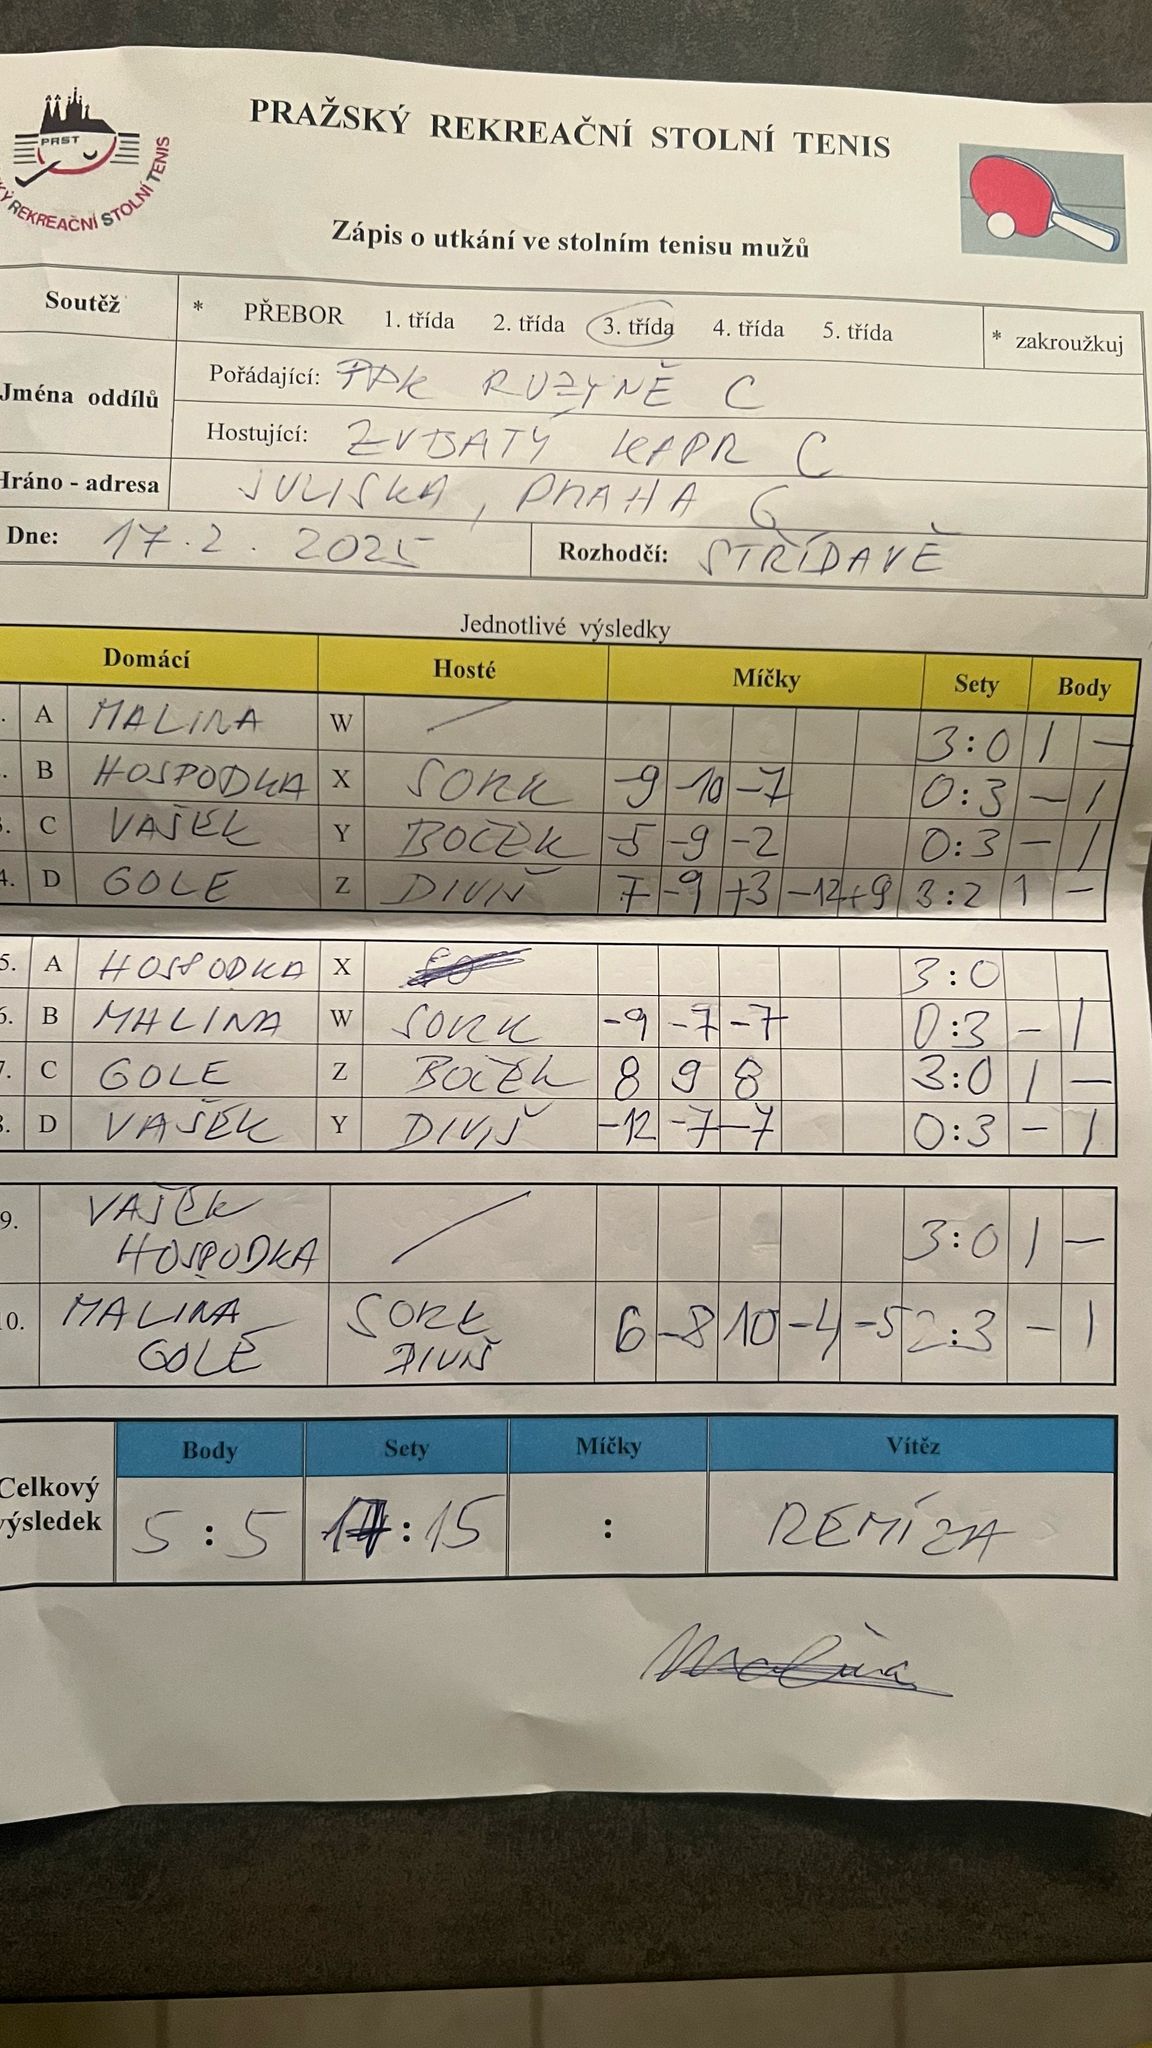 PRAŽSKÝ REKREAČNÍ STOLNÍ TENIS
PRST
KÝ REKREAČNÍ STOLNÍ TENIS
Zápis o utkání ve stolním tenisu mužů
Soutěž * PŘEBOR 1. třída 2. třída 3. třída 4. třída 5. třída * zakroužkuj
Jména oddílů
Pořádající: RUZYNĚ C
Hostující: ZUBATÝ KAPR C
Hráno - adresa JULISKA, PRAHA 6
Dne: 17.2.2025 Rozhodčí: STŘÍDAVĚ
Jednotlivé výsledky
Domácí Hosté Míčky Sety Body
. A MALINA W / 3:0 1 -
. B HOSPODKA X SORK -9 -10 -7 0:3 - 1
3. C VAŠEK Y BOČEK -5 -9 -2 0:3 - 1
4. D GOLE Z DIVIŠ 7 -9 +3 -12 +9 3:2 1 -
5. A HOSPODKA X 3:0
6. B MALINA W SORK -9 -7 -7 0:3 - 1
7. C GOLE Z BOČEK 8 9 8 3:0 1 -
8. D VAŠEK Y DIVIŠ -12 -7 -7 0:3 - 1
9. VAŠEK HOSPODKA / 3:0 1 -
0. MALINA GOLE SORK DIVIŠ 6 -8 10 -4 -5 2:3 - 1
Body Sety Míčky Vítěz
Celkový výsledek 5:5 :15 : REMÍZA
Malina